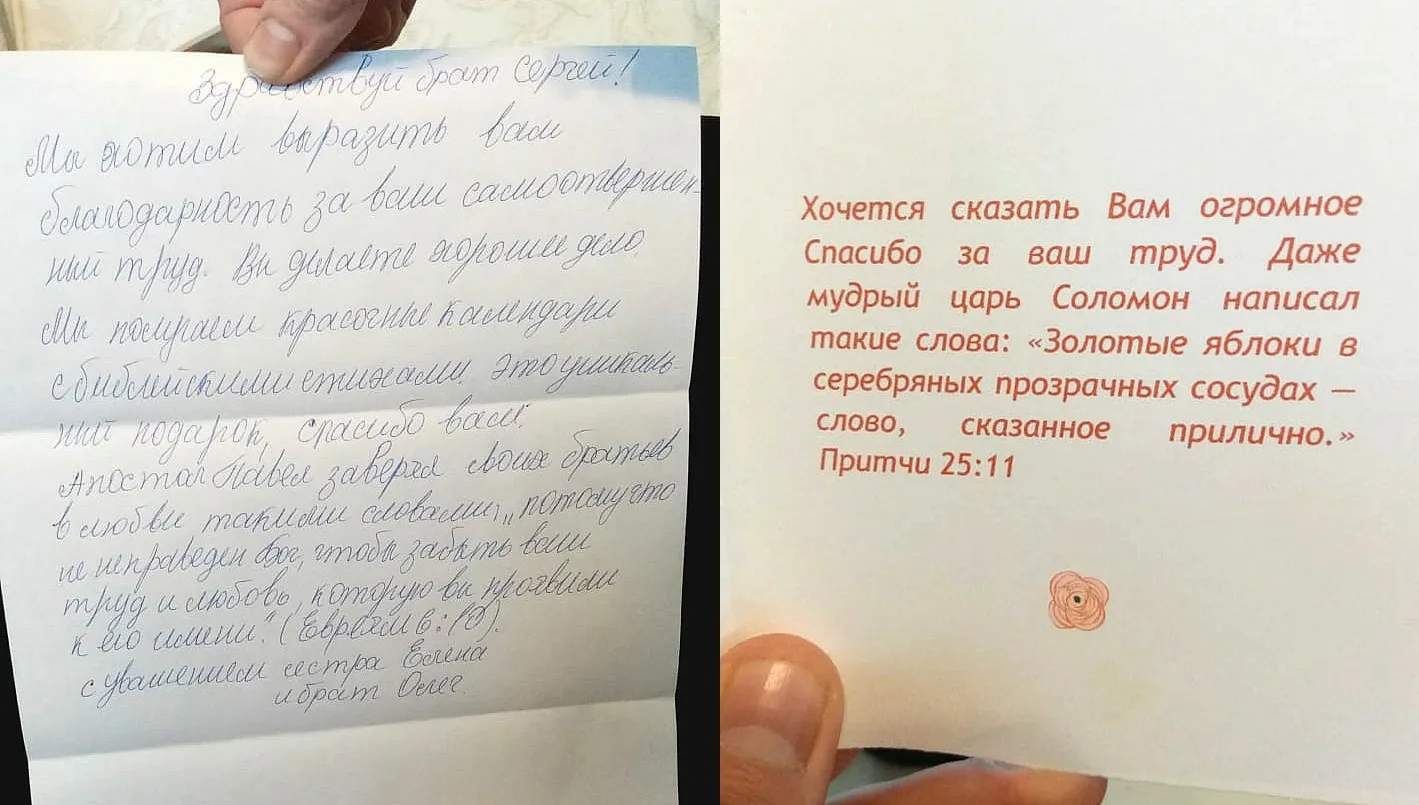 Здравствуй брат Сергей!
Мы хотим выразить вам
благодарность за ваш самоотвержен-
ный труд. Вы делаете хорошее дело.
Мы получаем красочные календари
с библейскими стихами. Это уникаль-
ный подарок, спасибо вам.
Апостол Павел заверял своих братьев
в любви такими словами: „потому что
не неправеден Бог, чтобы забыть ваш
труд и любовь, которую вы проявили
к его имени." (Евреям 6:10).
с уважением сестра Елена
и брат Олег.
Хочется сказать Вам огромное
Спасибо за ваш труд. Даже
мудрый царь Соломон написал
такие слова: «Золотые яблоки в
серебряных прозрачных сосудах —
слово, сказанное прилично.»
Притчи 25:11